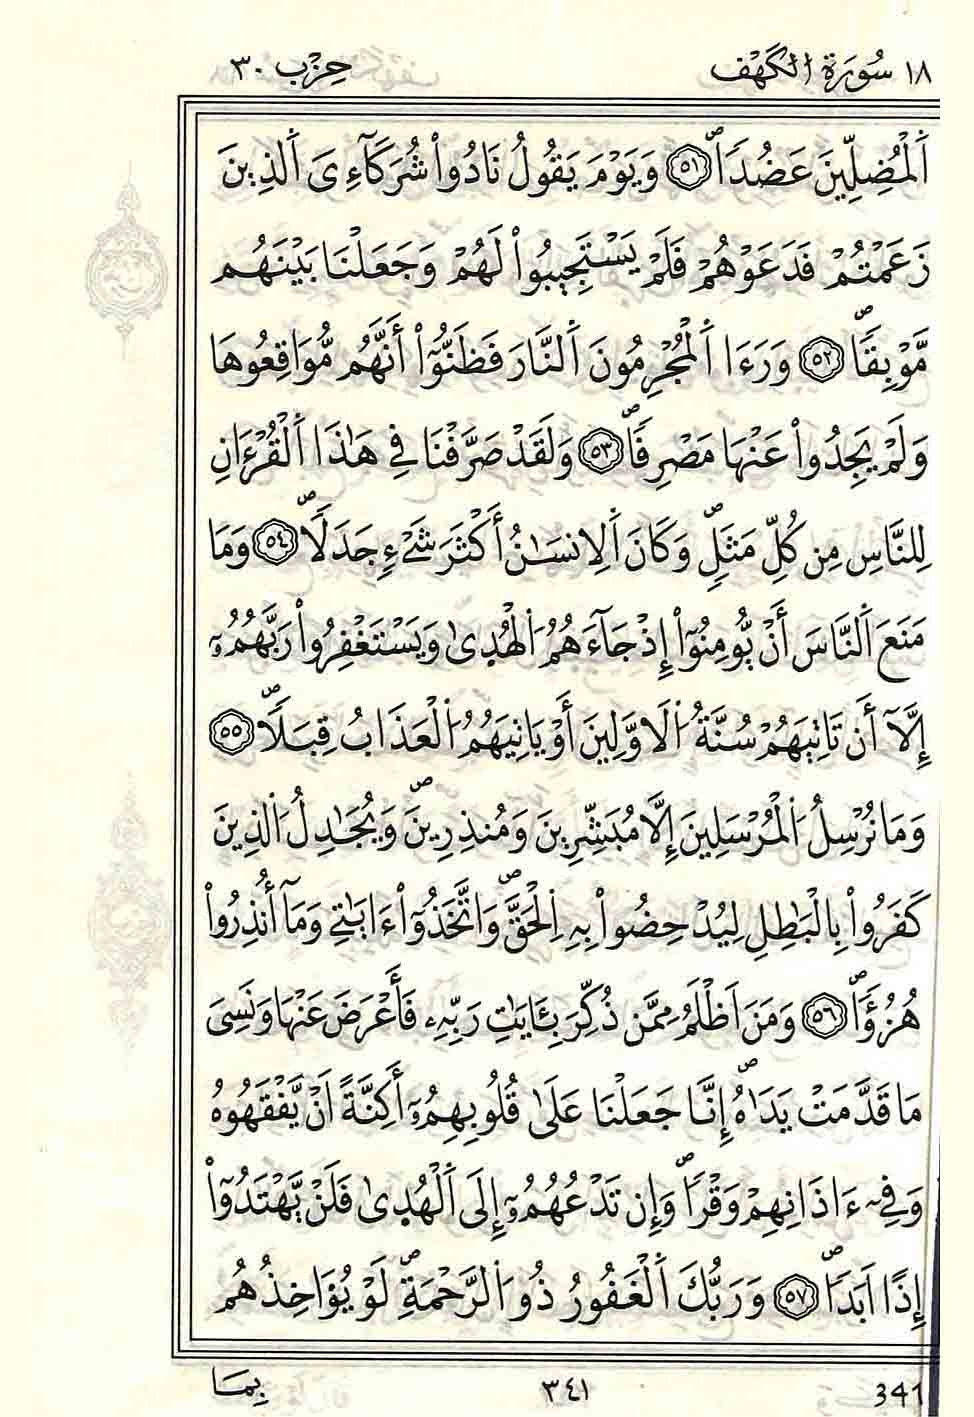 ١٨ سُورَةُ الكَهْف حِزْب ٣٠
اَ۬لْمُضِلِّينَ عَضُداٗۖ ٥١ وَيَوْمَ يَقُولُ نَادُواْ شُرَكَآءِيَ اَ۬لذِينَ
زَعَمْتُمْ فَدَعَوْهُمْ فَلَمْ يَسْتَجِيبُواْ لَهُمْ وَجَعَلْنَا بَيْنَهُم
مَّوْبِقاٗۖ ٥٢ وَرَءَا اَ۬لْمُجْرِمُونَ اَ۬لنَّارَ فَظَنُّوٓاْ أَنَّهُم مُّوَاقِعُوهَا
وَلَمْ يَجِدُواْ عَنْهَا مَصْرِفاٗۖ ٥٣ وَلَقَدْ صَرَّفْنَا فِي هَٰذَا اَ۬لْقُرْءَانِ
لِلنَّاسِ مِن كُلِّ مَثَلٖۖ وَكَانَ اَ۬لِانسَٰنُ أَكْثَرَ شَےْءٖ جَدَلاٗۖ ٥٤ وَمَا
مَنَعَ اَ۬لنَّاسَ أَنْ يُّومِنُوٓاْ إِذْ جَآءَهُمُ اُ۬لْهُد۪ىٰ وَيَسْتَغْفِرُواْ رَبَّهُمُۥٓ
إِلَّآ أَن تَاتِيَهُمْ سُنَّةُ اُ۬لَاوَّلِينَ أَوْ يَاتِيَهُمُ اُ۬لْعَذَابُ قِبَلاٗۖ ٥٥
وَمَا نُرْسِلُ اُ۬لْمُرْسَلِينَ إِلَّا مُبَشِّرِينَ وَمُنذِرِينَۖ وَيُجَٰدِلُ اُ۬لذِينَ
كَفَرُواْ بِالْبَٰطِلِ لِيُدْحِضُواْ بِهِ اِ۬لْحَقَّۖ وَاتَّخَذُوٓاْ ءَايَٰتِے وَمَآ أُنذِرُواْ
هُزُؤاٗۖ ٥٦ وَمَنَ اَظْلَمُ مِمَّن ذُكِّرَ بِـَٔايَٰتِ رَبِّهِۦ فَأَعْرَضَ عَنْهَا وَنَسِيَ
مَا قَدَّمَتْ يَدَٰهُۖ إِنَّا جَعَلْنَا عَلَىٰ قُلُوبِهِمُۥٓ أَكِنَّةً اَنْ يَّفْقَهُوهُ
وَفِےٓ ءَاذَانِهِمْ وَقْراٗۖ وَإِن تَدْعُهُمُۥٓ إِلَى اَ۬لْهُد۪ىٰ فَلَنْ يَّهْتَدُوٓاْ
إِذاً اَبَداٗۖ ٥٧ وَرَبُّكَ اَ۬لْغَفُورُ ذُو اُ۬لرَّحْمَةِۖ لَوْ يُؤَاخِذُهُم
بِمَا ٣٤١ 341